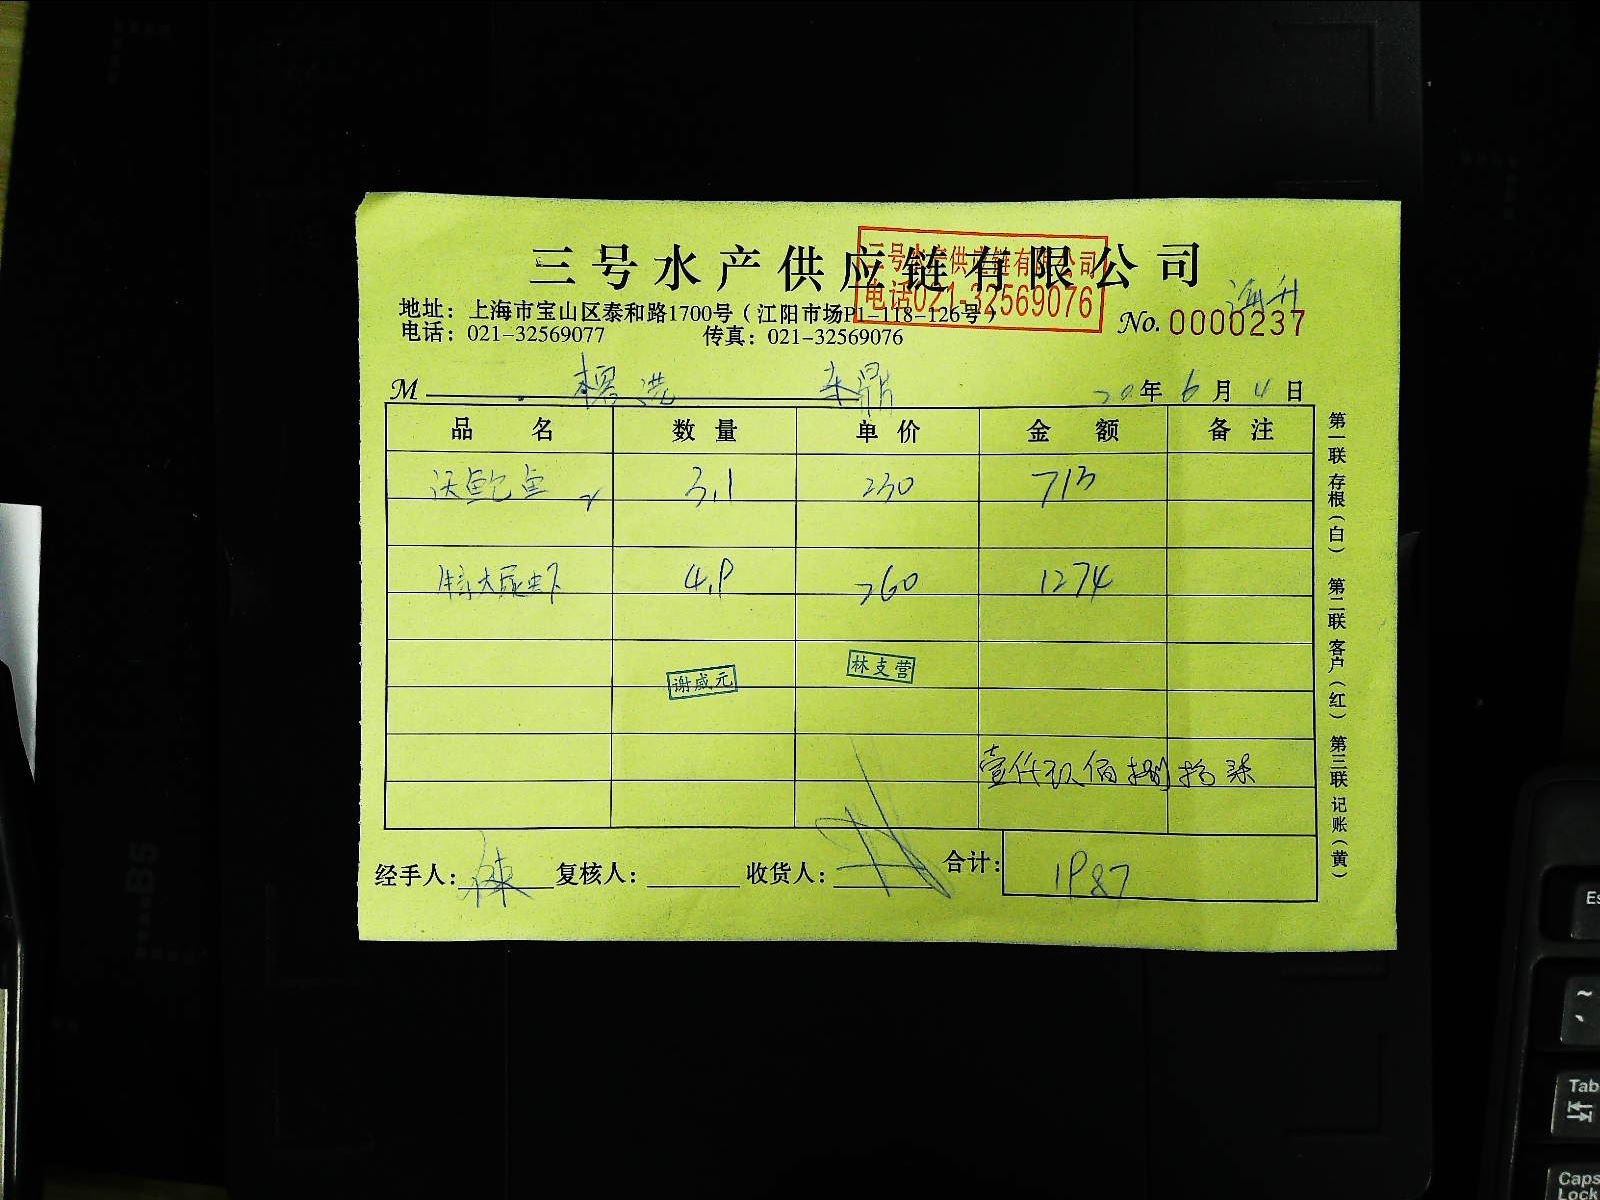 三号水产供应链有限公司
三号水产供应链有限公司
电话021-32569076
地址：上海市宝山区泰和路1700号（江阳市场P1-118-126号）
电话：021-32569077 传真：021-32569076
No. 0000237
M 榕港 东鼎 20年6月4日
品名 数量 单价 金额 备注
鲍鱼 3.1 230 713
大尿虾 4.9 260 1274
谢咸元 林支营
壹仟玖佰捌拾柒
经手人： 复核人： 收货人： 合计： 1987
第一联 存根（白） 第二联 客户（红） 第三联 记账（黄）
B5
Es
~
Tab
Caps
Lock